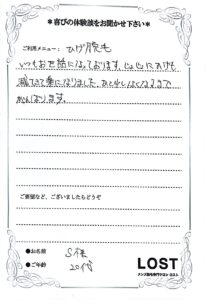 ＊喜びの体験談をお聞かせ下さい＊
ご利用メニュー： ひげ脱毛
いつもお世話になっております。じょじょにおひげも
減ってきて楽になりました。あと少しなくなるまで
がんばります。
ご要望など、ございましたらどうぞ
●お名前 S様
●ご年齢 20代
LOST
メンズ脱毛専門サロン ロスト